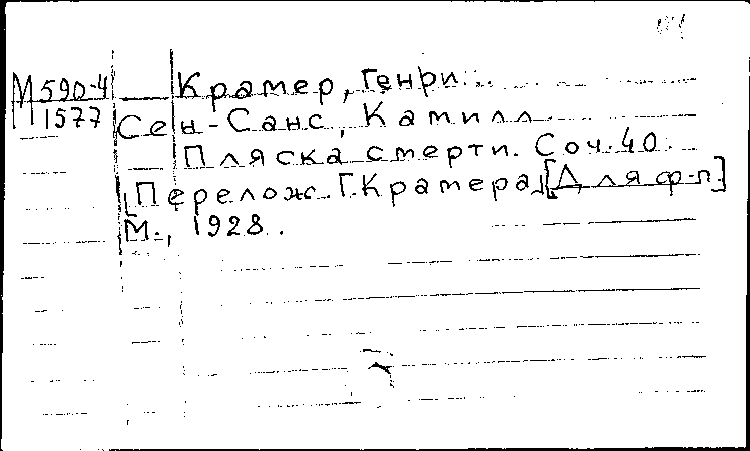 М590-4 Крамер, Генри.
1577 Сен-Санс, Камилл.
Пляска смерти. Соч. 40.
[Перелож. Г. Крамера] [Для ф-п]
М., 1928.